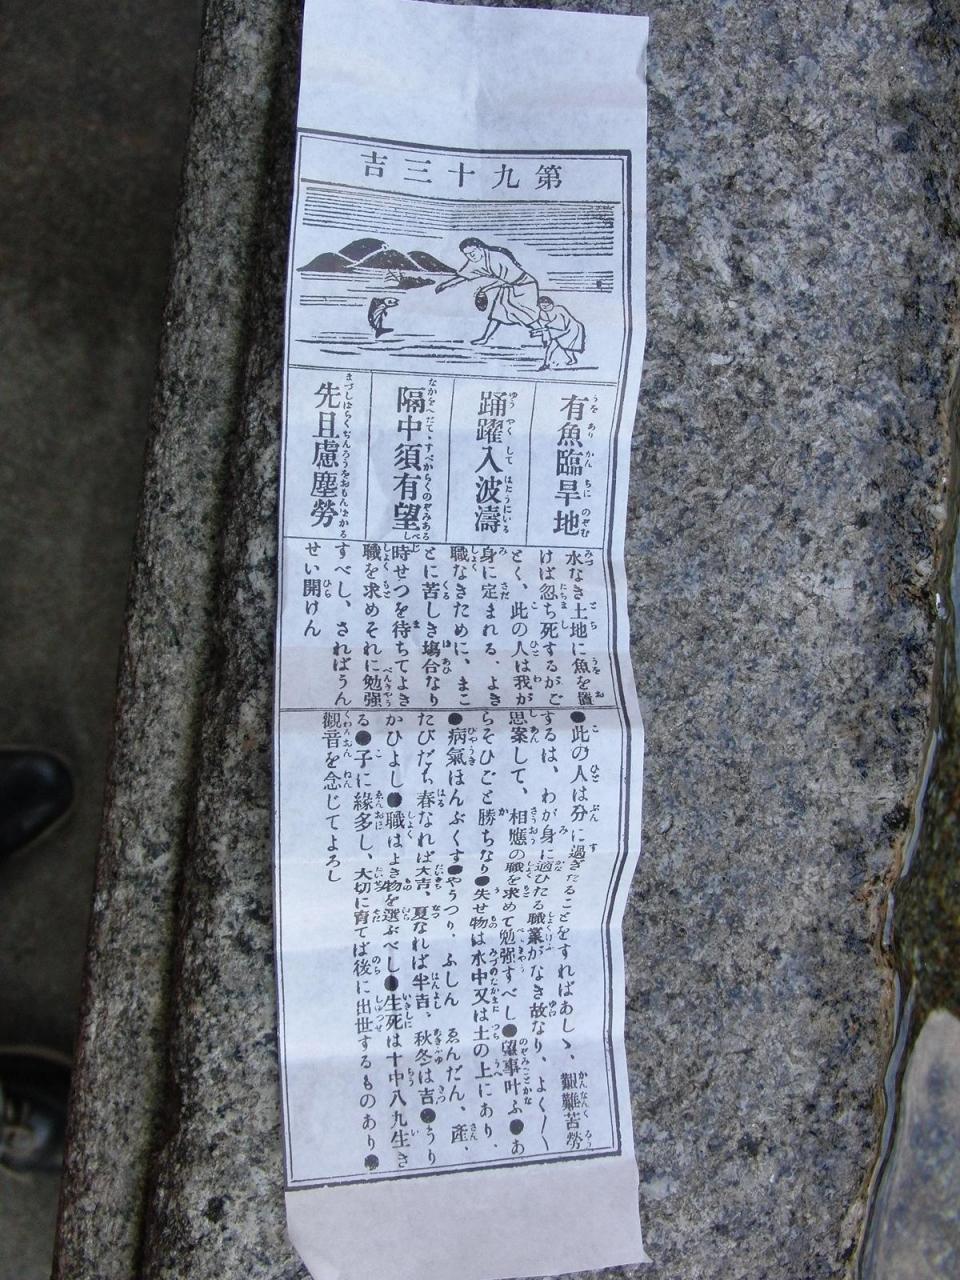 第九十三吉
有魚臨旱地
踊躍入波濤
隔中須有望
先且慮塵勞
水なき土地に魚を置
けば忽ち死するがご
とく、此の人は我が
身に定まれる、よき
職なきために、まこ
とに苦しき塲合なり
時せつを待ちてよき
職を求めそれに勉强
すべし、さればうん
せい開けん
●此の人は分に過ぎたることをすればあしゝ、艱難苦勞
するは、わが身に適ひたる職業がなき故なり、よく〳〵
思案して、相應の職を求めて勉强すべし●望事叶ふ●あ
らそひごと勝ちなり●失せ物は水中又は土の上にあり、
●病氣はんぷくす●やうつり、ふしん ゑんだん、產、
たびだち春なれば大吉、夏なれば半吉、秋冬は吉●うり
かひよし●職はよき物を選ぶべし●生死は十中八九生き
る●子に緣多し、大切に育てば後に出世するものあり●
觀音を念じてよろし